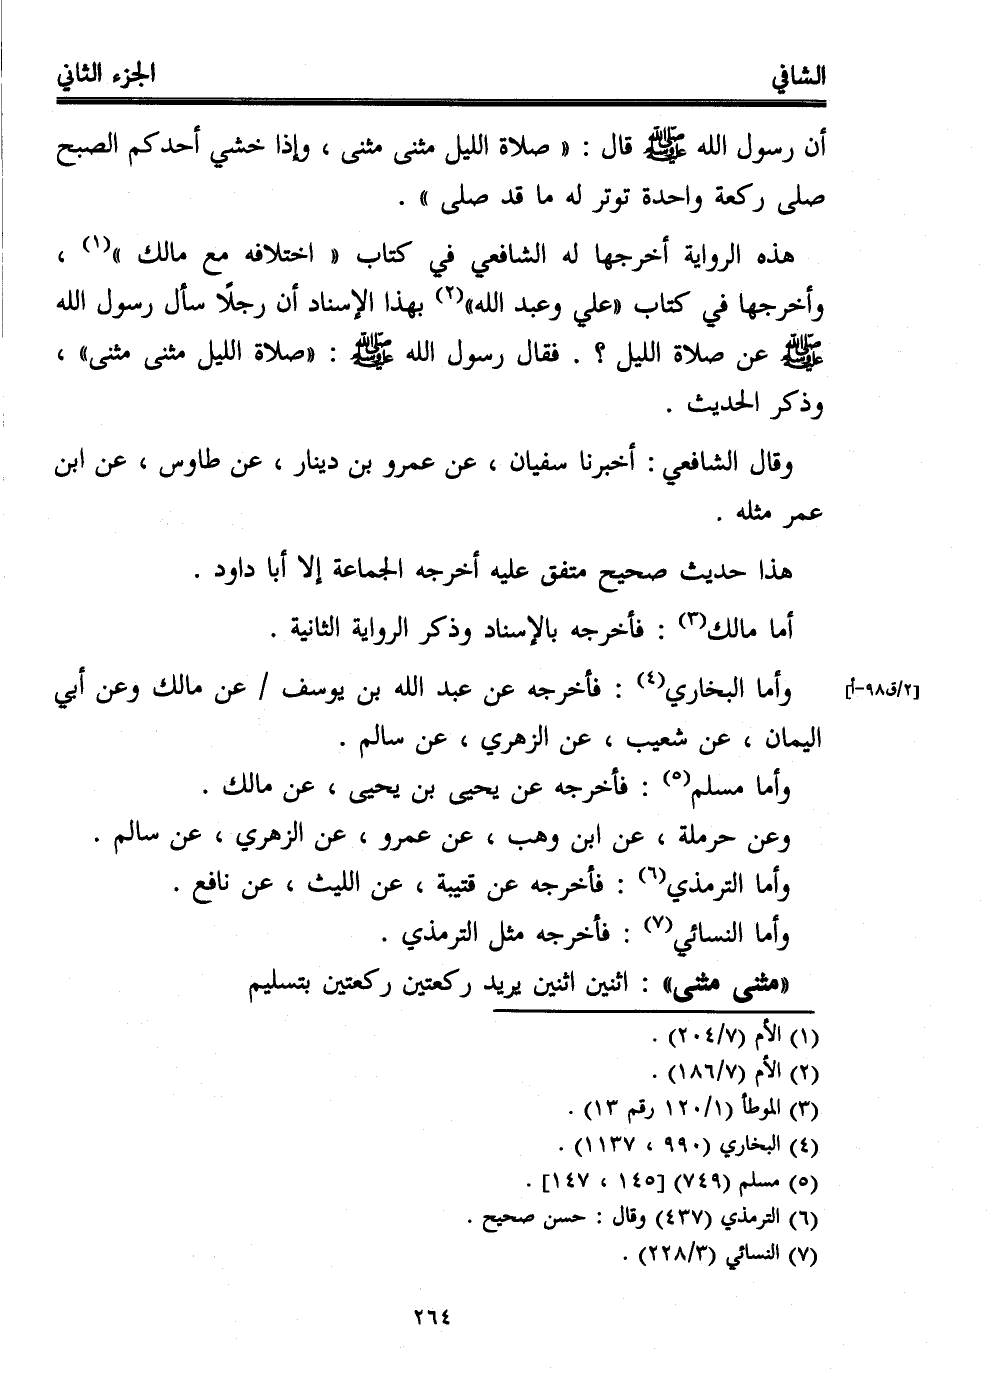 الشافي الجزء الثاني
أن رسول الله ﷺ قال : « صلاة الليل مثنى مثنى ، وإذا خشي أحدكم الصبح
صلى ركعة واحدة توتر له ما قد صلى » .
هذه الرواية أخرجها له الشافعي في كتاب « اختلافه مع مالك »(١) ،
وأخرجها في كتاب «علي وعبد الله»(٢) بهذا الإسناد أن رجلًا سأل رسول الله
ﷺ عن صلاة الليل ؟ . فقال رسول الله ﷺ : «صلاة الليل مثنى مثنى» ،
وذكر الحديث .
وقال الشافعي : أخبرنا سفيان ، عن عمرو بن دينار ، عن طاوس ، عن ابن
عمر مثله .
هذا حديث صحيح متفق عليه أخرجه الجماعة إلا أبا داود .
أما مالك(٣) : فأخرجه بالإسناد وذكر الرواية الثانية .
وأما البخاري(٤) : فأخرجه عن عبد الله بن يوسف / عن مالك وعن أبي
[٢/ق٩٨-أ]
اليمان ، عن شعيب ، عن الزهري ، عن سالم .
وأما مسلم(٥) : فأخرجه عن يحيى بن يحيى ، عن مالك .
وعن حرملة ، عن ابن وهب ، عن عمرو ، عن الزهري ، عن سالم .
وأما الترمذي(٦) : فأخرجه عن قتيبة ، عن الليث ، عن نافع .
وأما النسائي(٧) : فأخرجه مثل الترمذي .
«مثنى مثنى» : اثنين اثنين يريد ركعتين ركعتين بتسليم
(١) الأم (٢٠٤/٧) .
(٢) الأم (١٨٦/٧) .
(٣) الموطأ (١٢٠/١ رقم ١٣) .
(٤) البخاري (٩٩٠ ، ١١٣٧) .
(٥) مسلم (٧٤٩) [١٤٥ ، ١٤٧] .
(٦) الترمذي (٤٣٧) وقال : حسن صحيح .
(٧) النسائي (٢٢٨/٣) .
٢٦٤